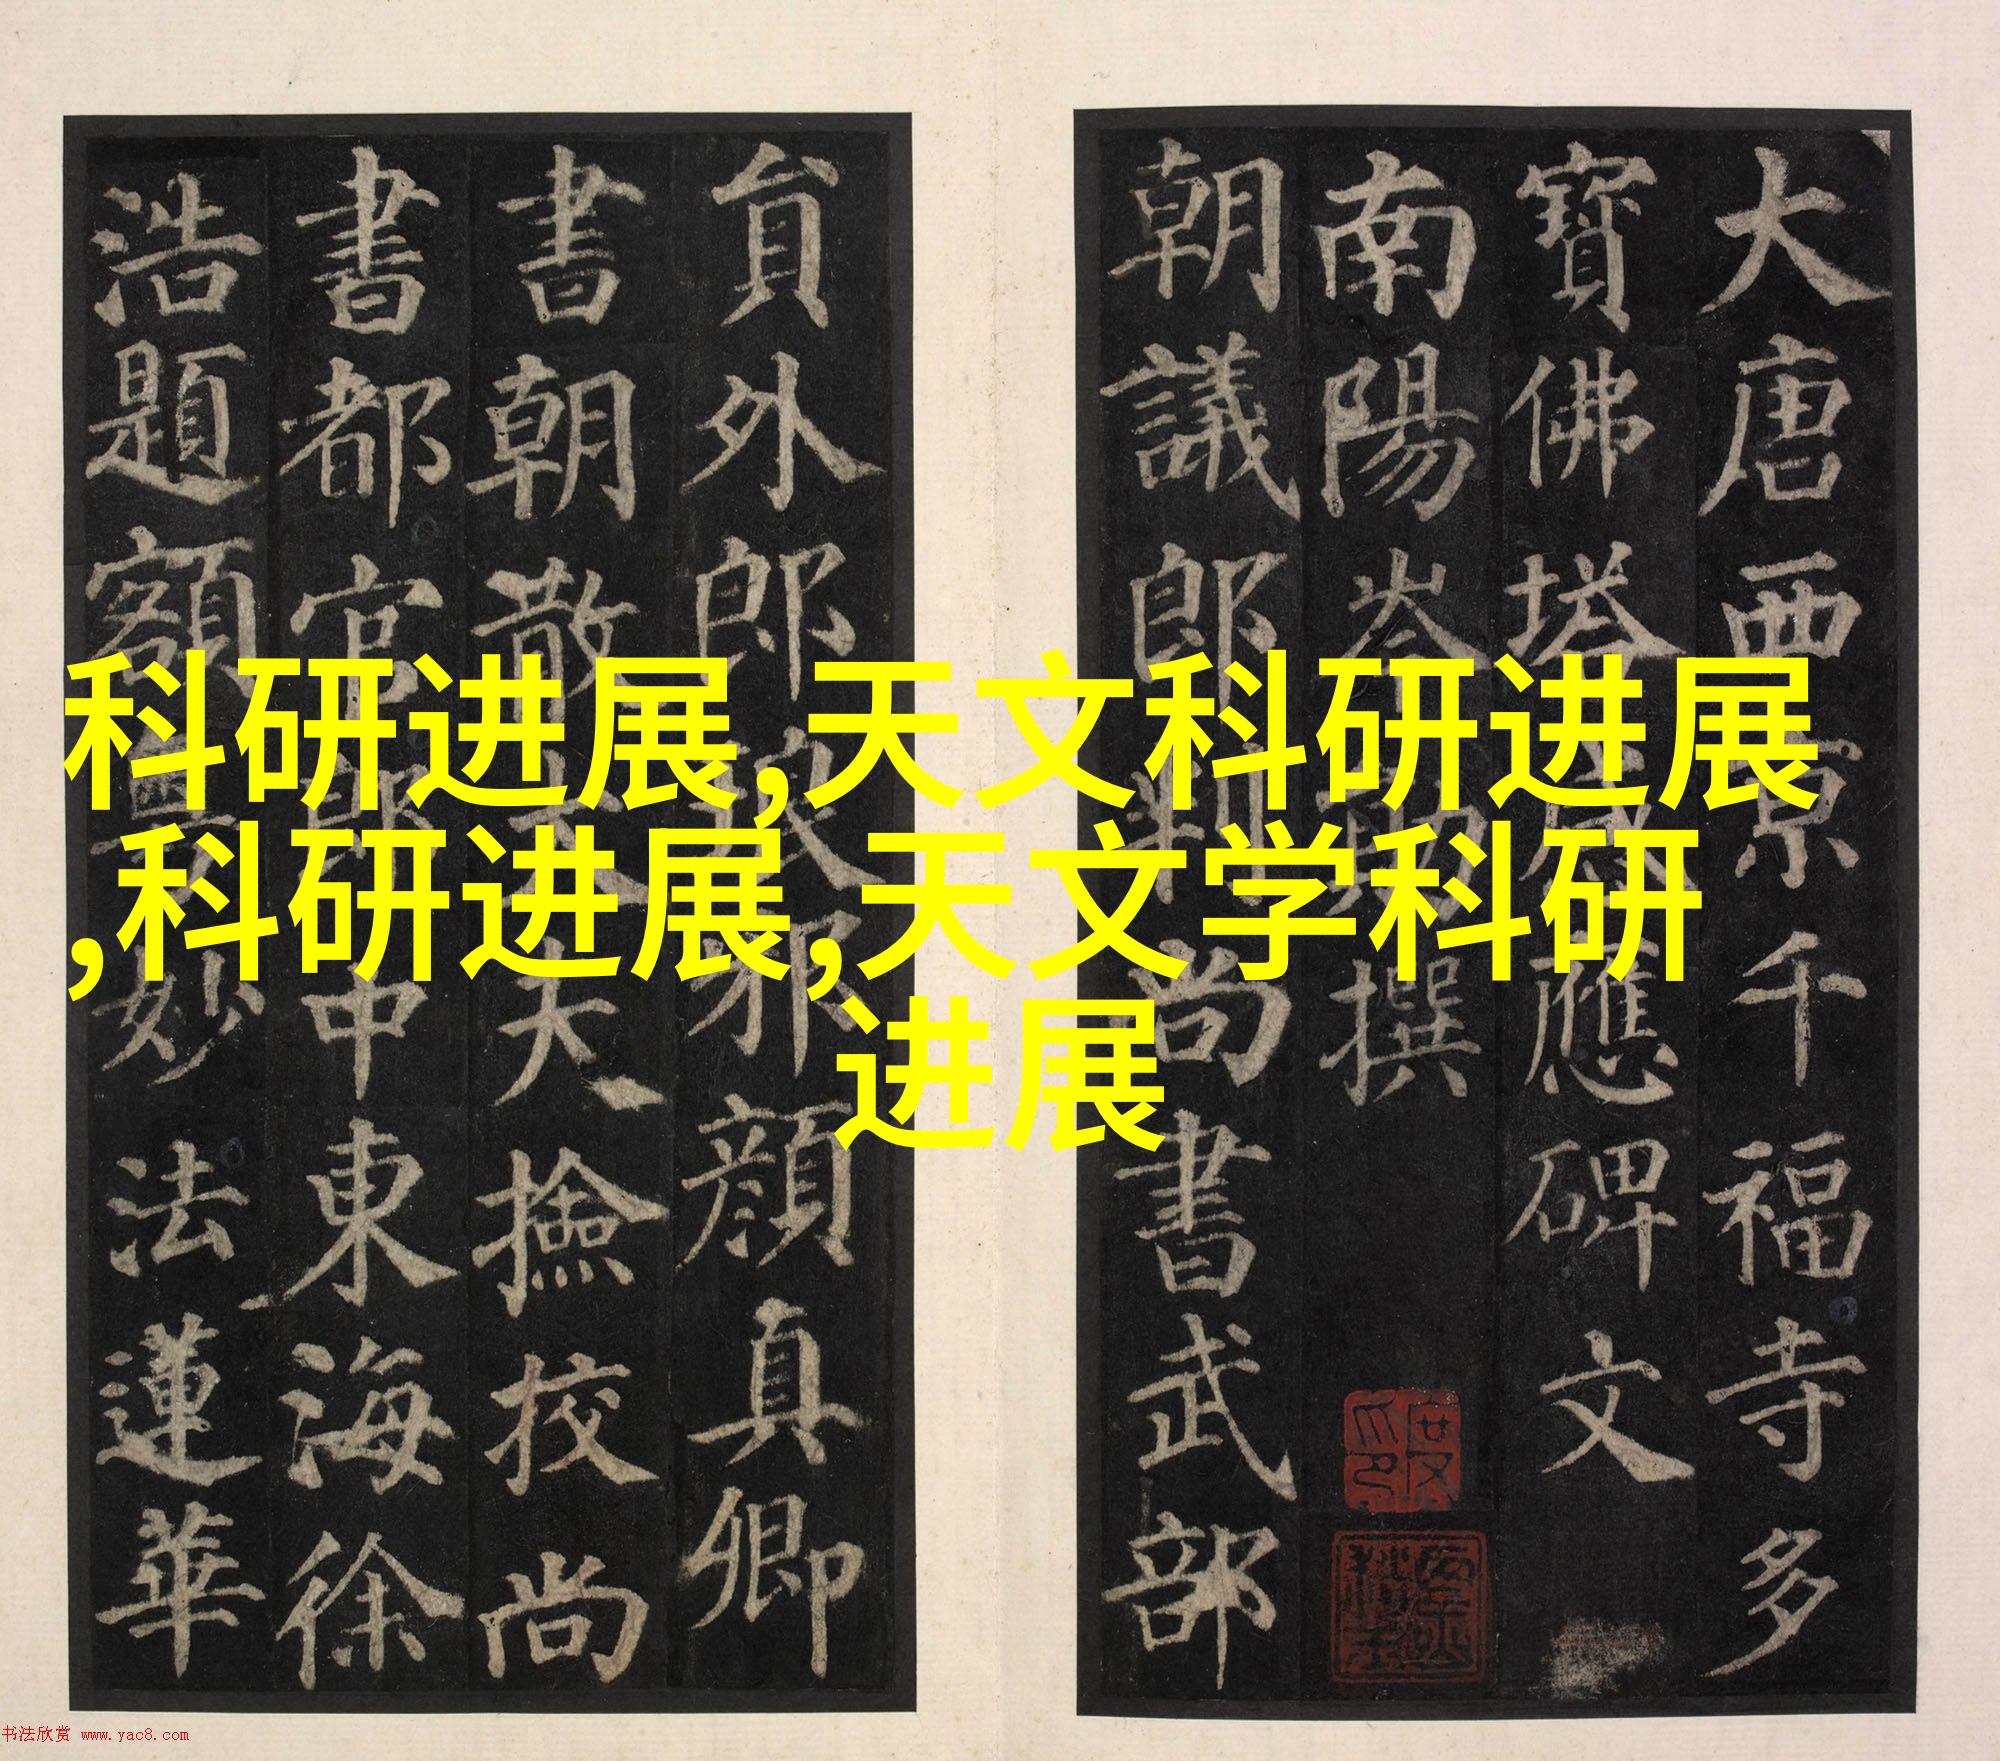 大唐西京千福寺多
寶佛塔感應碑文
南陽岑勛撰
朝議郎判尚書武部
貟外郎琅邪顏真卿
書朝散大夫撿校尚
書都官郎中東海徐
浩題額
妙法蓮華
科研进展,天文科研进展
,科研进展,天文学科研
进展
书法欣赏 www.yac8.com